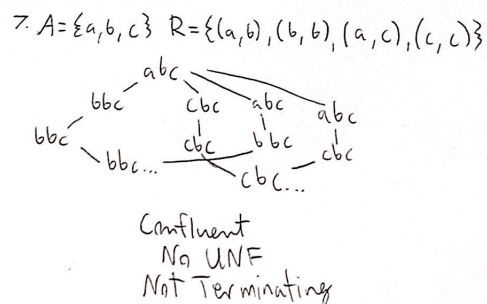 7. A={a,b,c} R={(a,b),(b,b),(a,c),(c,c)}
abc
bbc cbc abc abc
bbc cbc bbc cbc
bbc... cbc...
Confluent
No UNF
Not Terminating